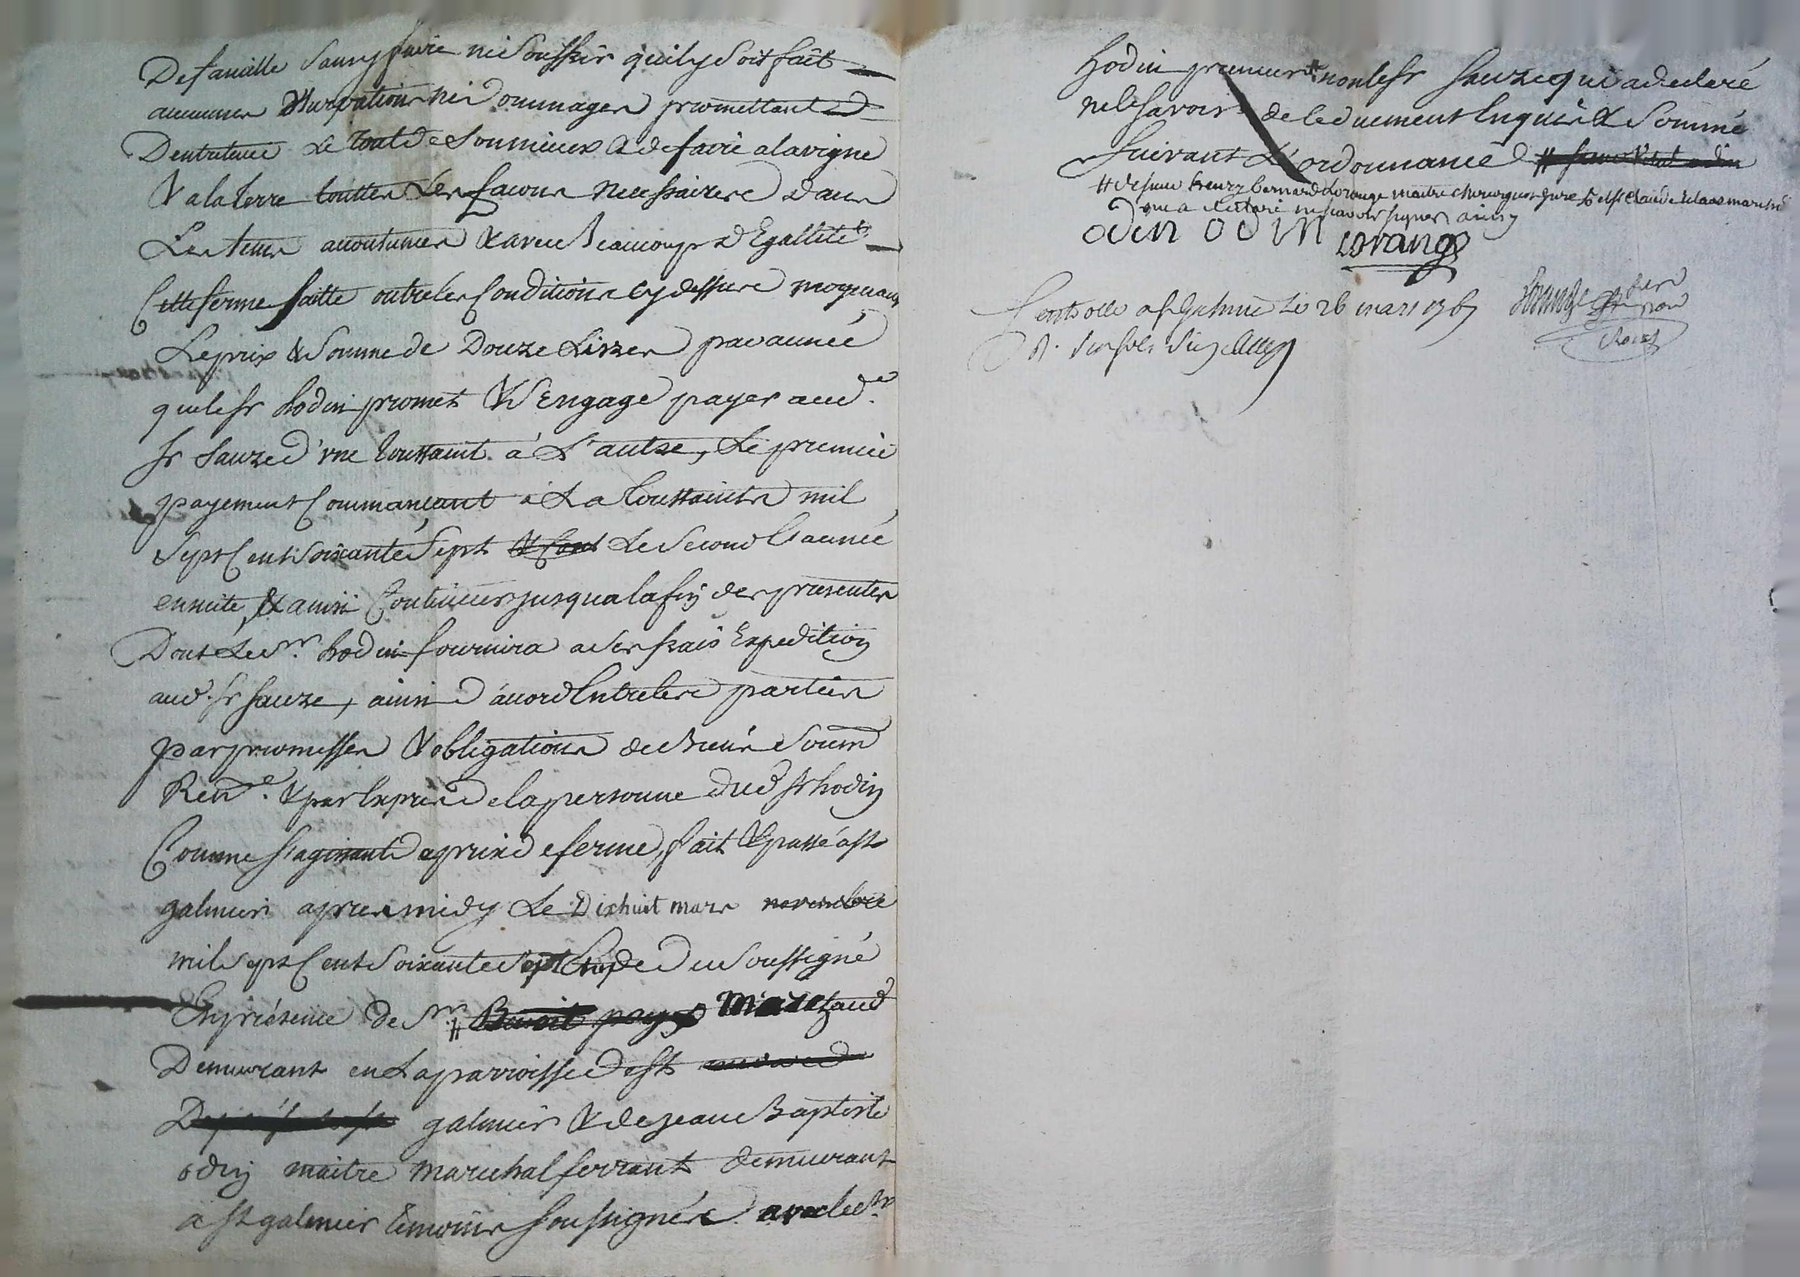 De famille sans y faire ni souffrir quil y soit fait
aucunes usurpations ni dommages promettant
Dentretenir le tout de son mieux & de faire a la vigne
& a la terre touttes les facons necessaires dans
Les tems accoutumés & avec Beaucoup d'Egallité
Cette ferme faitte outre les Conditions cy dessus moyenant
Le prix & somme de Douze Livres par année
que le sr hodin promet & s'Engage payer aud.
sr sauze d'une toussaint à L'autre, Le premier
payement Commancant à La toussaints mil
sept Cent soixante sept Le second L'année
ensuite, & ainsi Continuer jusqua la fin des presentes
Dont Le sr. hodin fournira a ses frais Expedition
aud. sr sauze, ainsi d'acord Entre les parties
par promesses & obligations de Biens soum
Ren. & par Exprés de la personne dud sr hodin
Comme s'agissant a prix de ferme, fait & passé a st
galmier apres midy Le Dixhuit mars novembre
mil sept Cent soixante sept soussigné
En présence de sr. # Benoit payes Marchand
Demeurant en La parroisse de st
galmier & de jean Baptiste
odin maitre marechal ferrant demeurant
a st galmier temoins soussignés avec le sr
hodin preneur & non le sr sauze qui a declaré
ne le savoir de ce duement Enquis & sommé
suivant L'ordonnance
# de sieur henry bernard Lorange maitre chirurgien juré &
qui a declaré ne scavoir signer ainsy
odin odin Lorange
Controllé a st Galmier Le 26 mars 1767
R. six sols six